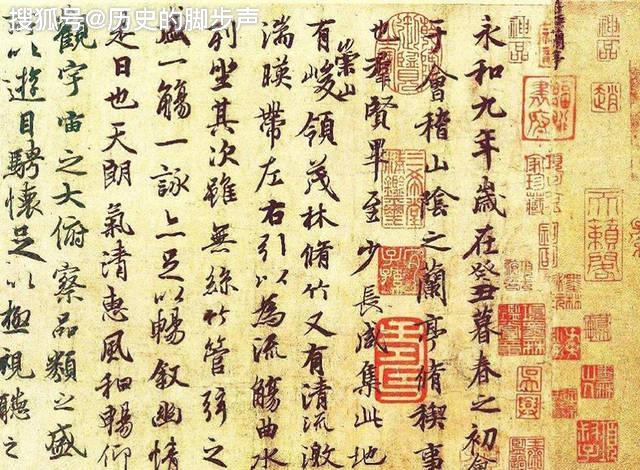 搜狐号@历史的脚步声
永和九年歲在癸丑暮春之初會
于會稽山陰之蘭亭脩稧事
也群賢畢至少長咸集此地
有崇山峻領茂林脩竹又有清流激
湍暎帶左右引以為流觴曲水
列坐其次雖無絲竹管弦之
盛一觴一詠亦足以暢敘幽情
是日也天朗氣清惠風和暢仰
觀宇宙之大俯察品類之盛
所以遊目騁懷足以極視聽之
神品
神品
趙
天籟閣
三希堂精鑑璽
宜子孫